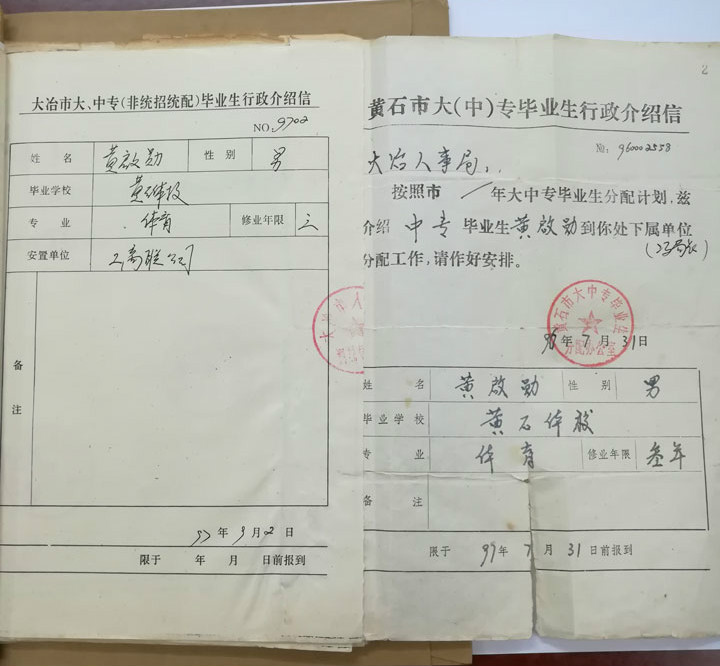 大冶市大、中专(非统招统配)毕业生行政介绍信
NO.9702
姓 名 黄啟勋 性 别 男
毕业学校 黄石体校
专 业 体育 修业年限 三
安置单位 工商联公司
备注
97年9月2日
限于 年 月 日前报到
大冶市人
2
黄石市大(中)专毕业生行政介绍信
№: 960002558
大冶人事局:
按照市 年大中专毕业生分配计划,兹
介绍 中专 毕业生黄啟勋到你处下属单位
分配工作,请作好安排。
黄石市大中专毕业生
分配办公室
年7月31日
姓 名 黄啟勋 性 别 男
毕业学校 黄石体校
专 业 体育 修业年限 叁年
备 注
限于 97年7月31日前报到